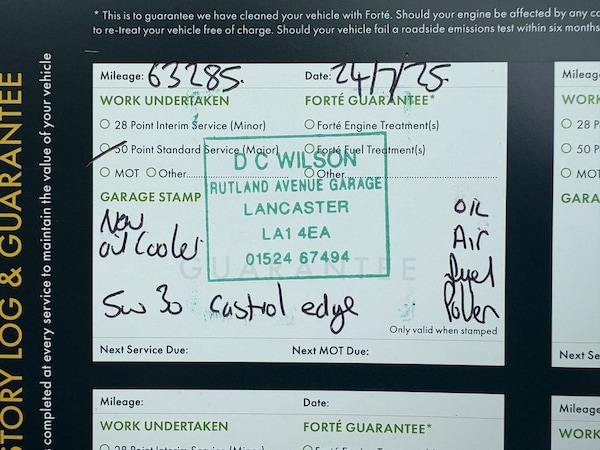 * This is to guarantee we have cleaned your vehicle with Forté. Should your engine be affected by any
to re-treat your vehicle free of charge. Should your vehicle fail a roadside emissions test within six months
STORY LOG & GUARANTEE
completed at every service to maintain the value of your vehicle
Mileage: 63285. Date: 24/7/25.
WORK UNDERTAKEN FORTÉ GUARANTEE*
28 Point Interim Service (Minor) Forté Engine Treatment(s)
50 Point Standard Service (Major) Forté Fuel Treatment(s)
MOT Other Other
GARAGE STAMP
D C WILSON
RUTLAND AVENUE GARAGE
LANCASTER
LA1 4EA
01524 67494
New
oil Cooler
OIL
Air
fuel
Pollen
GUARANTEE
5w 30 castrol edge
Only valid when stamped
Next Service Due: Next MOT Due:
Mileage: Date:
WORK UNDERTAKEN FORTÉ GUARANTEE*
28 Point Interim Service (Minor)
Mileag
WORK
28 P
50 P
MOT
GARA
Next Se
Mileage
WORK